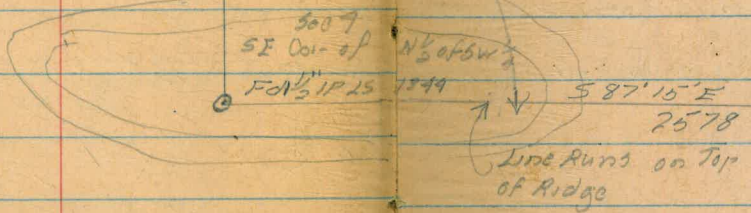 Sec 9
SE Cor of N½ of SW¼
Fd 1½" IP LS 1844
S 87°15'E
2578
Line Runs on Top
of Ridge